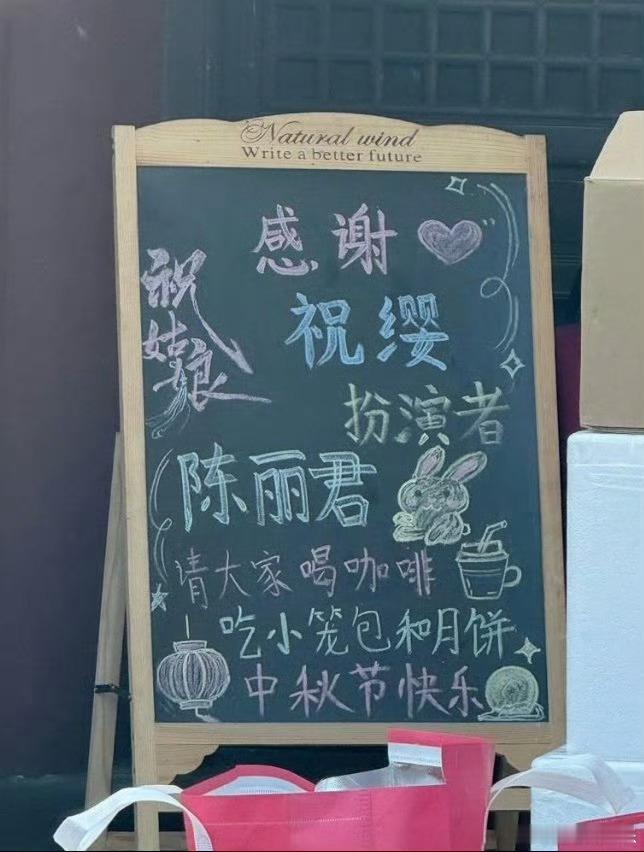 Natural wind
Write a better future
感谢
祝姑娘
祝缨
扮演者
陈丽君
请大家喝咖啡
吃小笼包和月饼
中秋节快乐